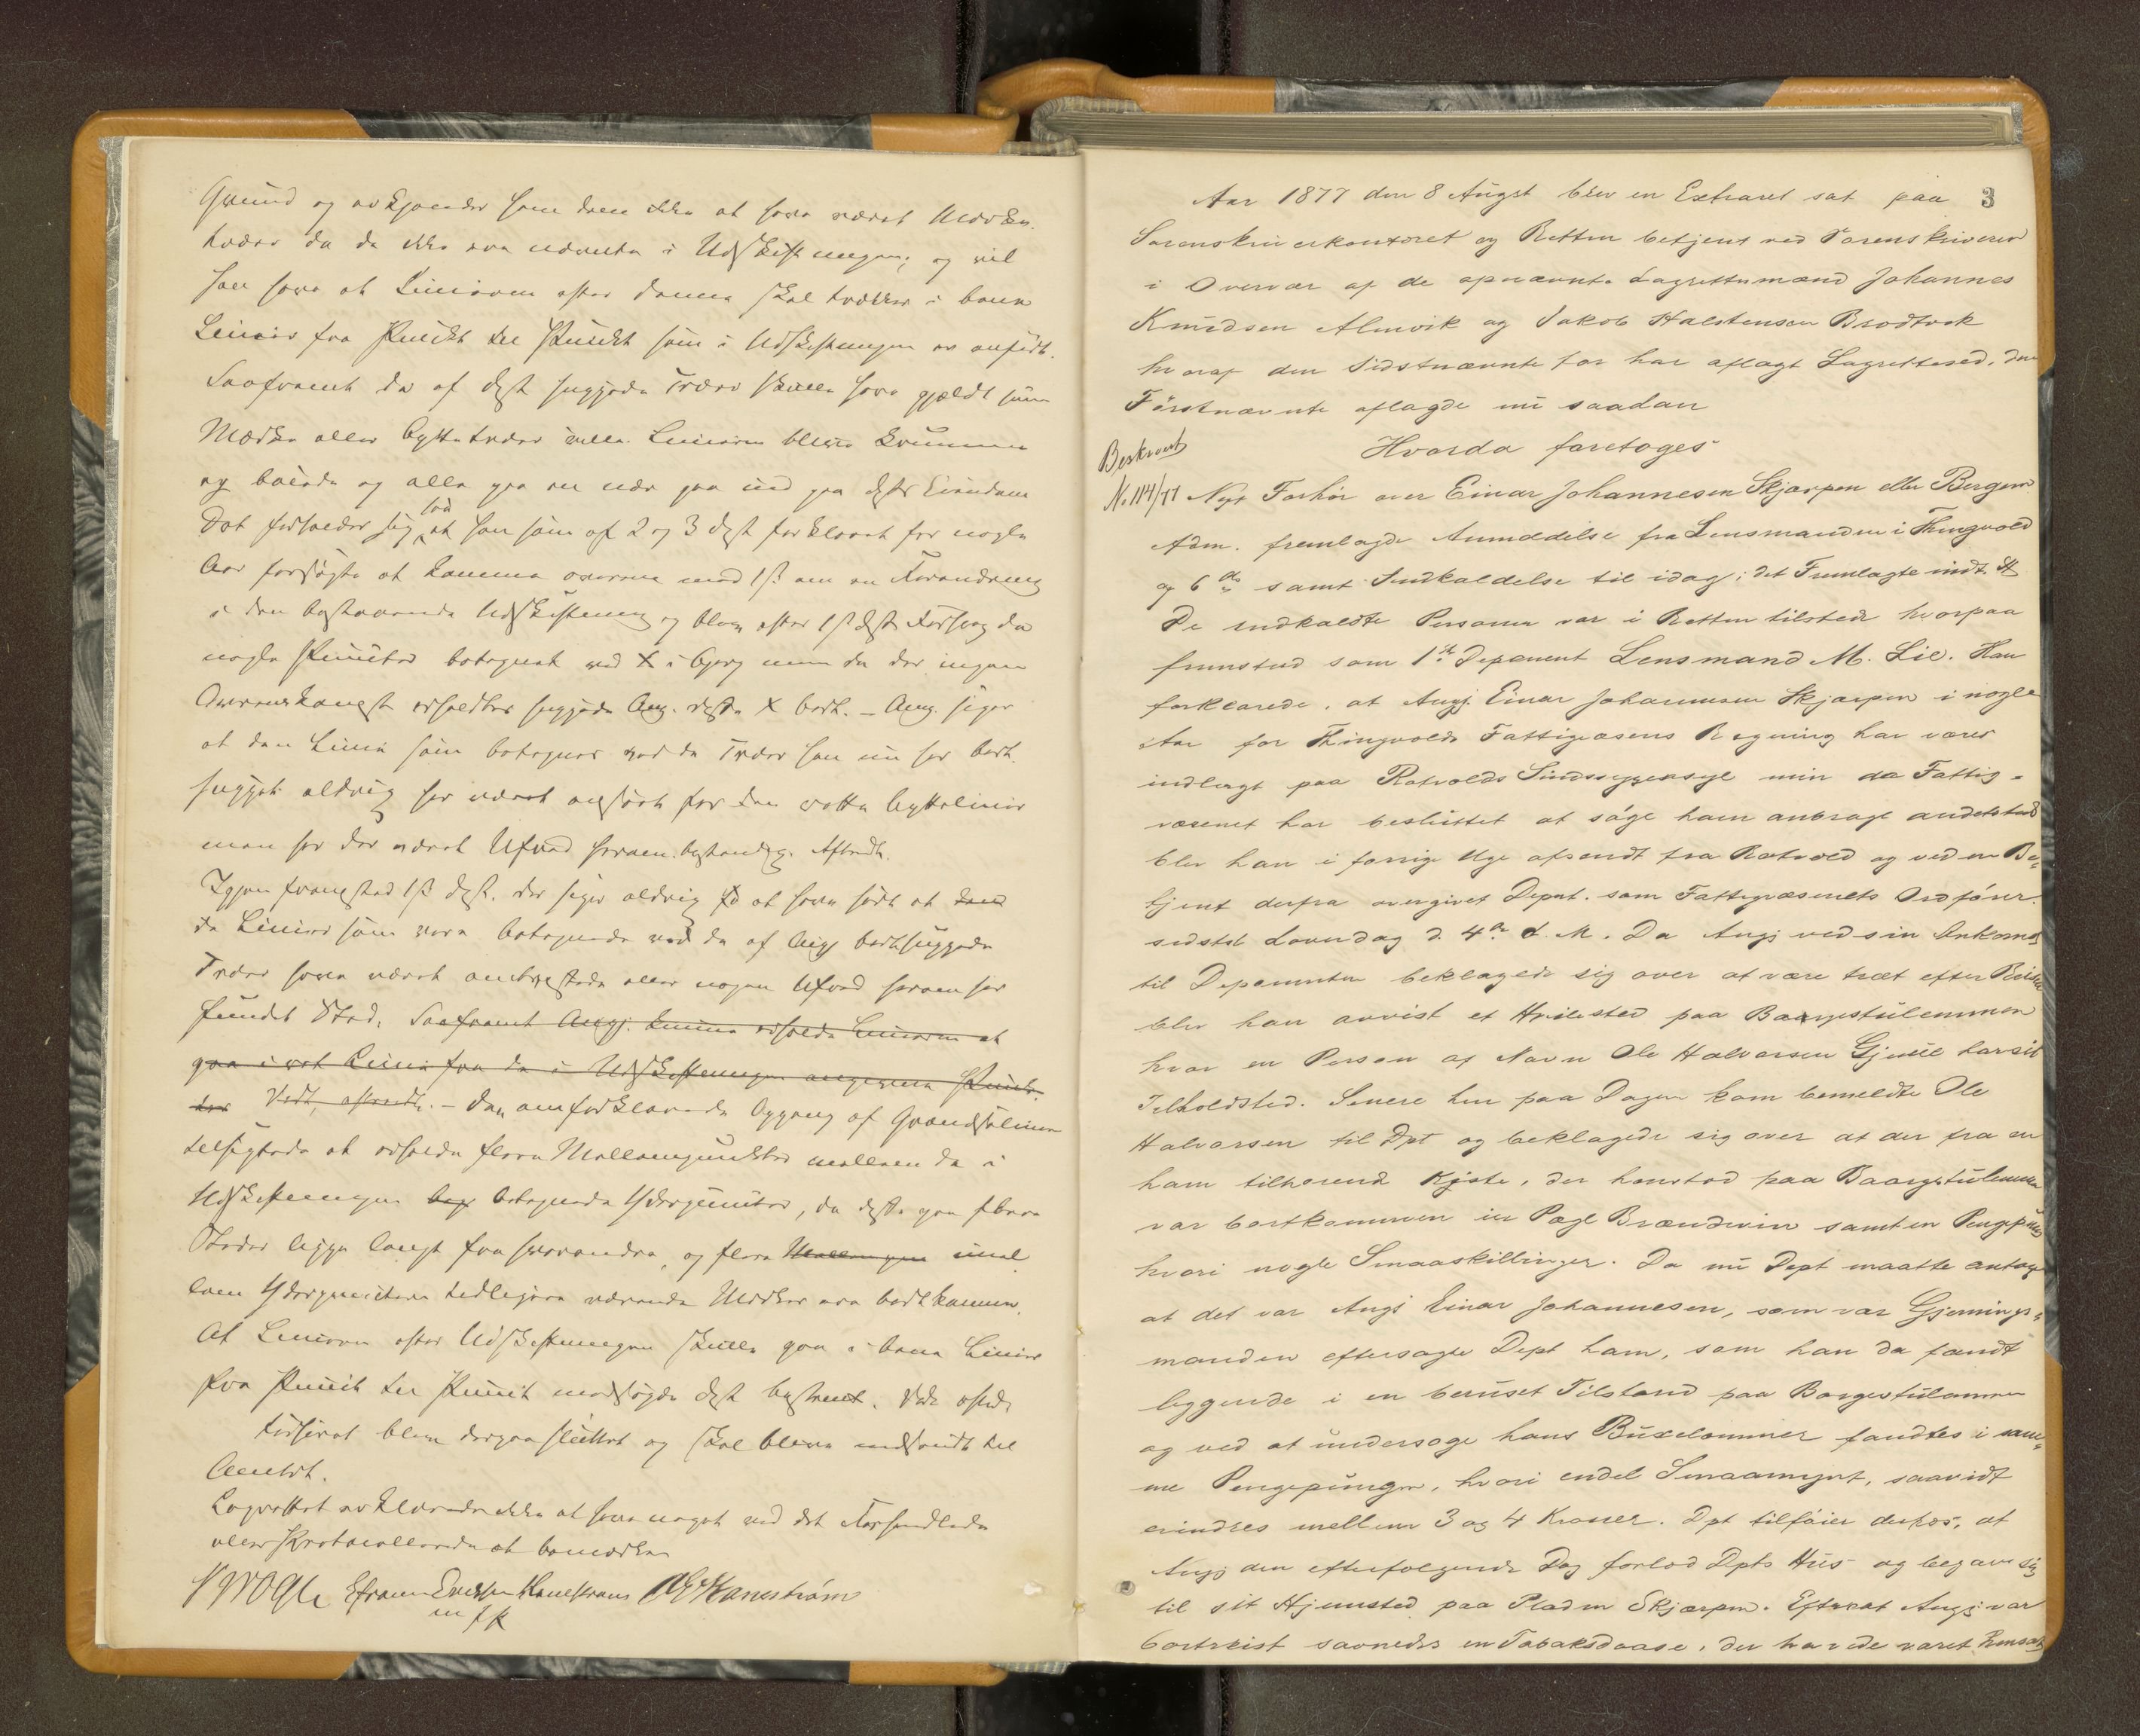 Grund og erkjender han dem ikke at have været Mærke-
træer da de ikke ere nævnte i Udskiftningen; og vil
han have at Linieren efter denne skal trækkes i bene
Linier fra Punkt til Punkt som i Udskiftningen er anført.
Saafremt de af Dept huggede Træer skulle have gjældt som
Mærke eller Byttetræer ville Linieren blive krumme
og bøiede og alle gaa en nær paa ind paa Depts Eiendom
Det forholder sig saa at han som af 2 og 3 Dept forklaret for nogle
Aar forsøgte at komme overens med 1ste om en Forandring
i den bestaaende Udskiftning og blev efter 1ste Depts Forslag da
nogle Punkter betegnet ved X i Bjerg men da der ingen
Overenskomst erholdtes huggede Ang. disse X bort. - Ang. siger
at den Linie som betegnes ved de Træer han nu har bort-
hugget aldrig har været anseet for den rette Byttelinie
men har der været Ufred herom bestandig. Aftraadt.
Igjen fremstod 1ste Dept. der siger aldrig at have hørt at
de Linier som vare betegnede ved de af Angj borthuggede
Træer have været ombestridte eller nogen Ufred herom har
fundet Sted. Saafremt Angj. kunne erholde Linieren at
gaa i ret Linie fra de i Udskiftningen angivne Punk-
ter Vedt, aftraadt. - Den omforklarede Opgang af Grændselinien
tilsigtede at erholde flere Mellempunkter mellem de i
Udskiftningen betegnede Yderpunkter, da disse paa flere
Steder ligge langt fra hverandre, og flere mel
lem Yderpunkterne tidligere værende Mærker ere bortkomne.
At Linieren efter Udskiftningen skulle gaa i bene Linier
fra Punkt til Punkt modsagde Dept bestemt. Vedt aftraadt
Forhøret blev derpaa sluttet og skal blive indsendt til
Amtet.
Lagrettet erklærede ikke at have noget ved det Forhandlede
eller Protocollerede at bemærke
Efraim Ericksen
m f P
3
Aar 1877 den 8 August blev en Extraret sat paa
Sorenskriverkontoret og Retten betjent ved Sorenskriveren
i Overvær af de opnævnte Lagrettesmænd Johannes
Knudsen Almvik og Jakob Halstensen Brodtvok
hvoraf den Sidstnævnte før har aflagt Lagrettesed, den
Førstnævnte aflagde nu saadan
Hvorda foretoges
Beskrevet
No 114/77 Nyt Forhør over Einar Johannesen Skjærpen eller Bergem
Adm. fremlagde Anmeldelse fra Lensmanden i Thingvold
af 6 ds samt Indkaldelse til idag; det Fremlagte indt. St
De indkaldte Personer var i Retten tilstede hvorpaa
fremstod som 1ste Deponent Lensmand M. Lie. Han
forklarede, at Angj. Einar Johannesen Skjærpen i nogle
Aar for Thingvolds Fattigvæsens Regning har været
indlagt paa Rotvolds Sindssygeasyl men da Fattig-
væsenet har besluttet at søge ham anbragt andetsteds
blev han i forrige Uge afsendt fra Rotvold og ved en Be-
tjent derfra overgivet Depnt. som Fattigvæsenets Ordfører
sidstel. Løverdag d. 4de d. M. Da Angj ved sin Ankomst
til Deponenten beklagede sig over at være træt efter Reisen
blev han anvist et Hvilested paa Baargestulemmen
hvor en Person af Navn Ole Halvorsen Gjmile har sit
Tilholdsted. Senere hen paa Dagen kom bemeldte Ole
Halvorsen til Dpt og beklagede sig over at der fra en
ham tilhørende Kiste, der henstod paa Baargstulemmen
var bortkommen en Pægl Brændevin samt en Pengepung
hvori nogle Smaaskillinger. Da nu Dept maatte antage
at det var Angj Einar Johannesen, som var Gjernings-
manden eftersøgte Dept ham, som han da fandt
liggende i en beruset Tilstand paa Borgestulemmen
og ved at undersøge hans Buxelommer fandtes i sam-
me Pengepungen, hvori endel Smaamynt, saavidt
erindres mellem 3 og 4 Kroner. Dpt tilføier derhos, at
Angj den efterfølgende Dag forlod Dpts Hus og begav sig
til sit Hjemsted paa Pladsen Skjærpen. Efterat Angj var
bortreist savnedes en Tobaksdaase, der havde været hensat